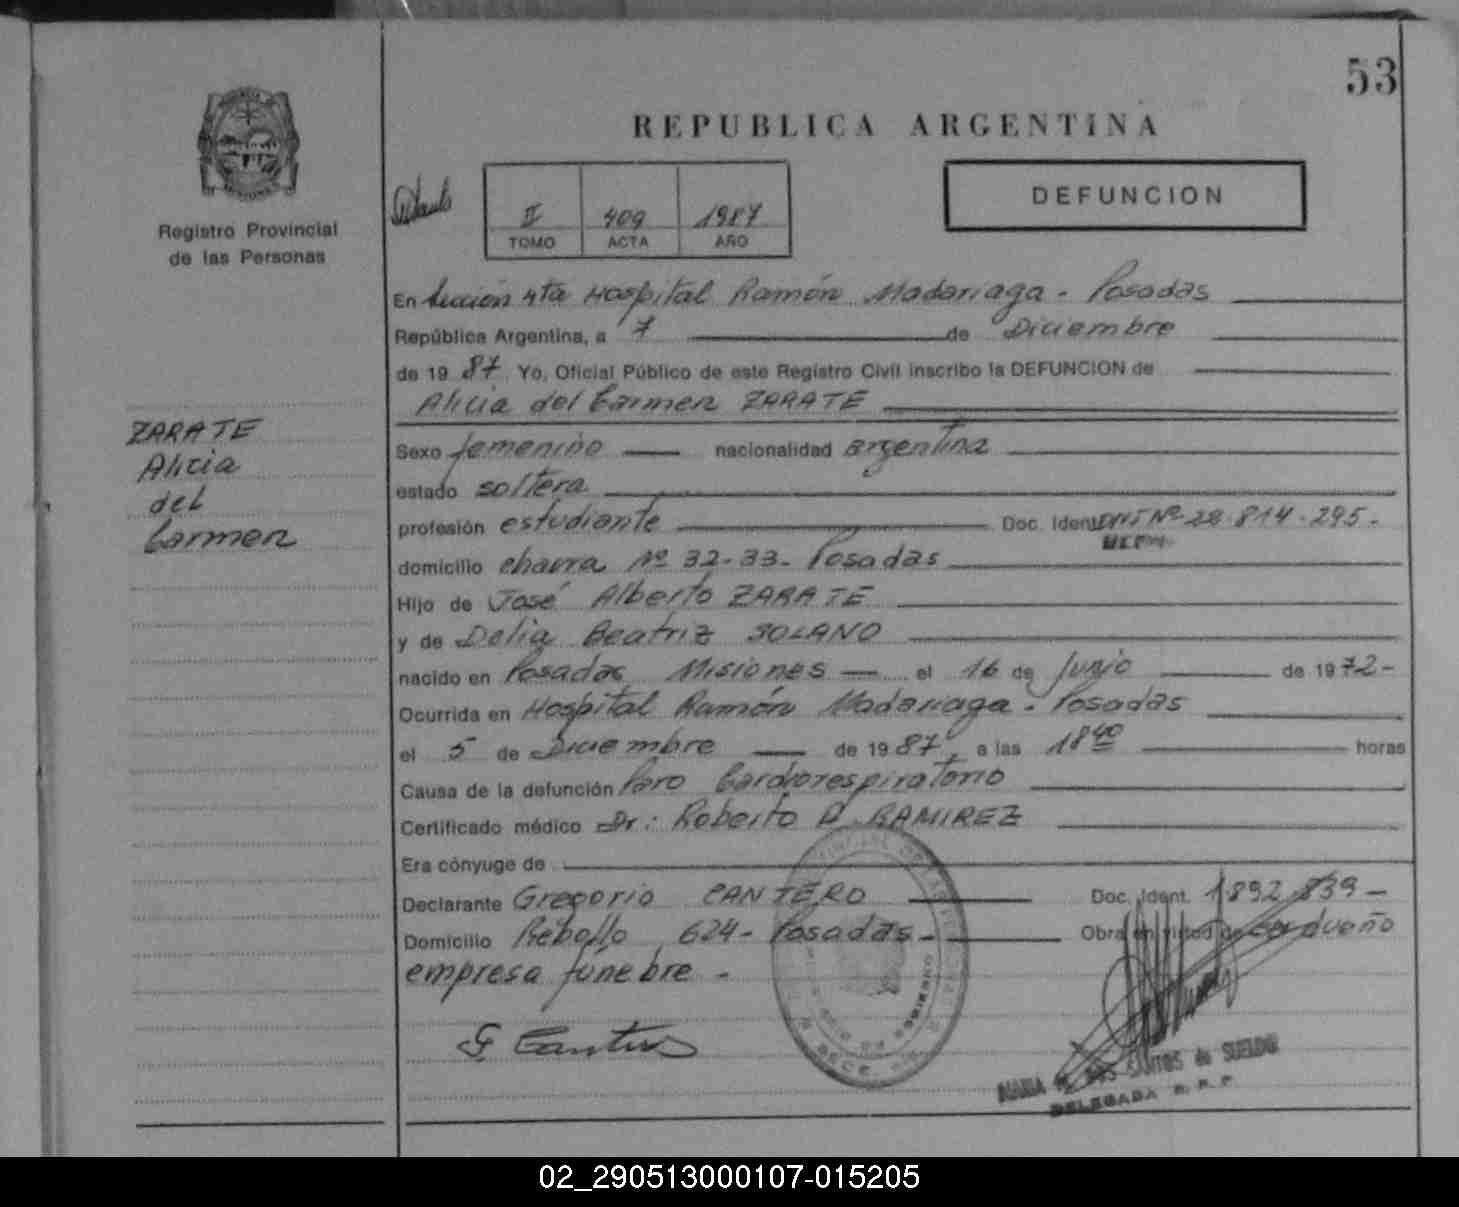 53
REPUBLICA ARGENTINA
DEFUNCION
II 409 1987
TOMO ACTA AÑO
Registro Provincial
de las Personas
En Sección 4ta Hospital Ramón Madariaga - Posadas
República Argentina, a 7 de Diciembre
de 19 87 Yo, Oficial Público de este Registro Civil inscribo la DEFUNCION de
Alicia del Carmen ZARATE
ZARATE
Alicia
del
Carmen
Sexo femenino nacionalidad argentina
estado soltera
profesión estudiante Doc. Ident. DNI Nº 28.814.295-
domicilio chacra Nº 32-33- Posadas
Hijo de José Alberto ZARATE
y de Delia Beatriz SOLANO
nacido en Posadas Misiones el 16 de Junio de 1972-
Ocurrida en Hospital Ramón Madariaga - Posadas
el 5 de Diciembre de 19 87, a las 18 40 horas
Causa de la defunción Paro Cardiorespiratorio
Certificado médico Dr: Roberto A. RAMIREZ
Era cónyuge de
Declarante Gregorio CANTERO Doc. Ident. 1892839-
Domicilio Rebollo 624- Posadas- Obra en virtud de ser dueño
empresa fúnebre -
MARIA DOS SANTOS de SUELDO
DELEGADA R.P.P.
02_290513000107-015205